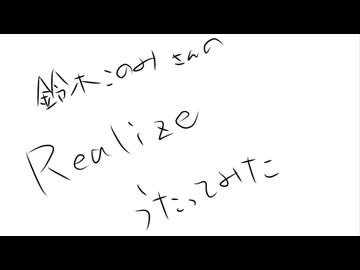 鈴木このみさんの
Realize
うたってみた